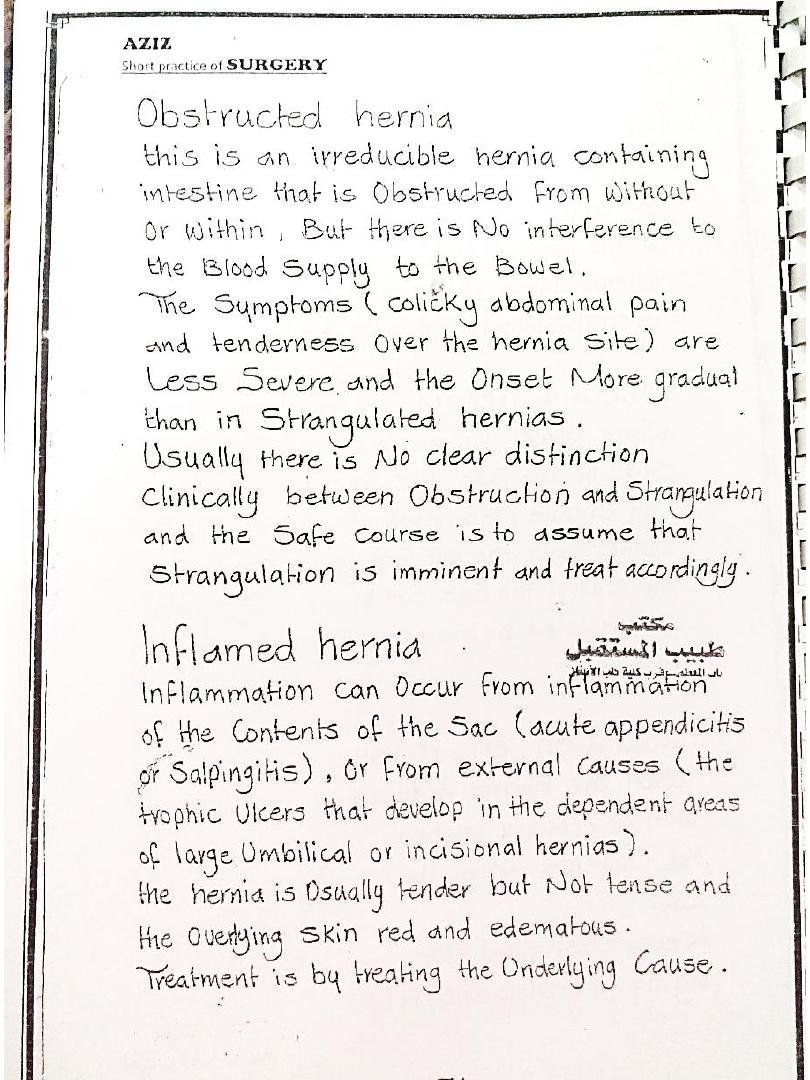 AZIZ
Short practice of SURGERY
Obstructed hernia
this is an irreducible hernia containing
intestine that is Obstructed from Without
Or Within , But there is No interference to
the Blood Supply to the Bowel .
The Symptoms ( colicky abdominal pain
and tenderness Over the hernia Site ) are
Less Severe and the Onset More gradual
than in Strangulated hernias .
Usually there is No clear distinction
Clinically between Obstruction and Strangulation
and the Safe Course is to assume that
Strangulation is imminent and treat accordingly .
Inflamed hernia
مكتب
طبيب المستقبل
Inflammation can Occur from inflammation
of the Contents of the Sac ( acute appendicitis
or Salpingitis ) , Or from external Causes ( the
trophic Ulcers that develop in the dependent areas
of large Umbilical or incisional hernias ) .
the hernia is Usually tender but Not tense and
the Overlying Skin red and edematous .
Treatment is by treating the Underlying Cause .